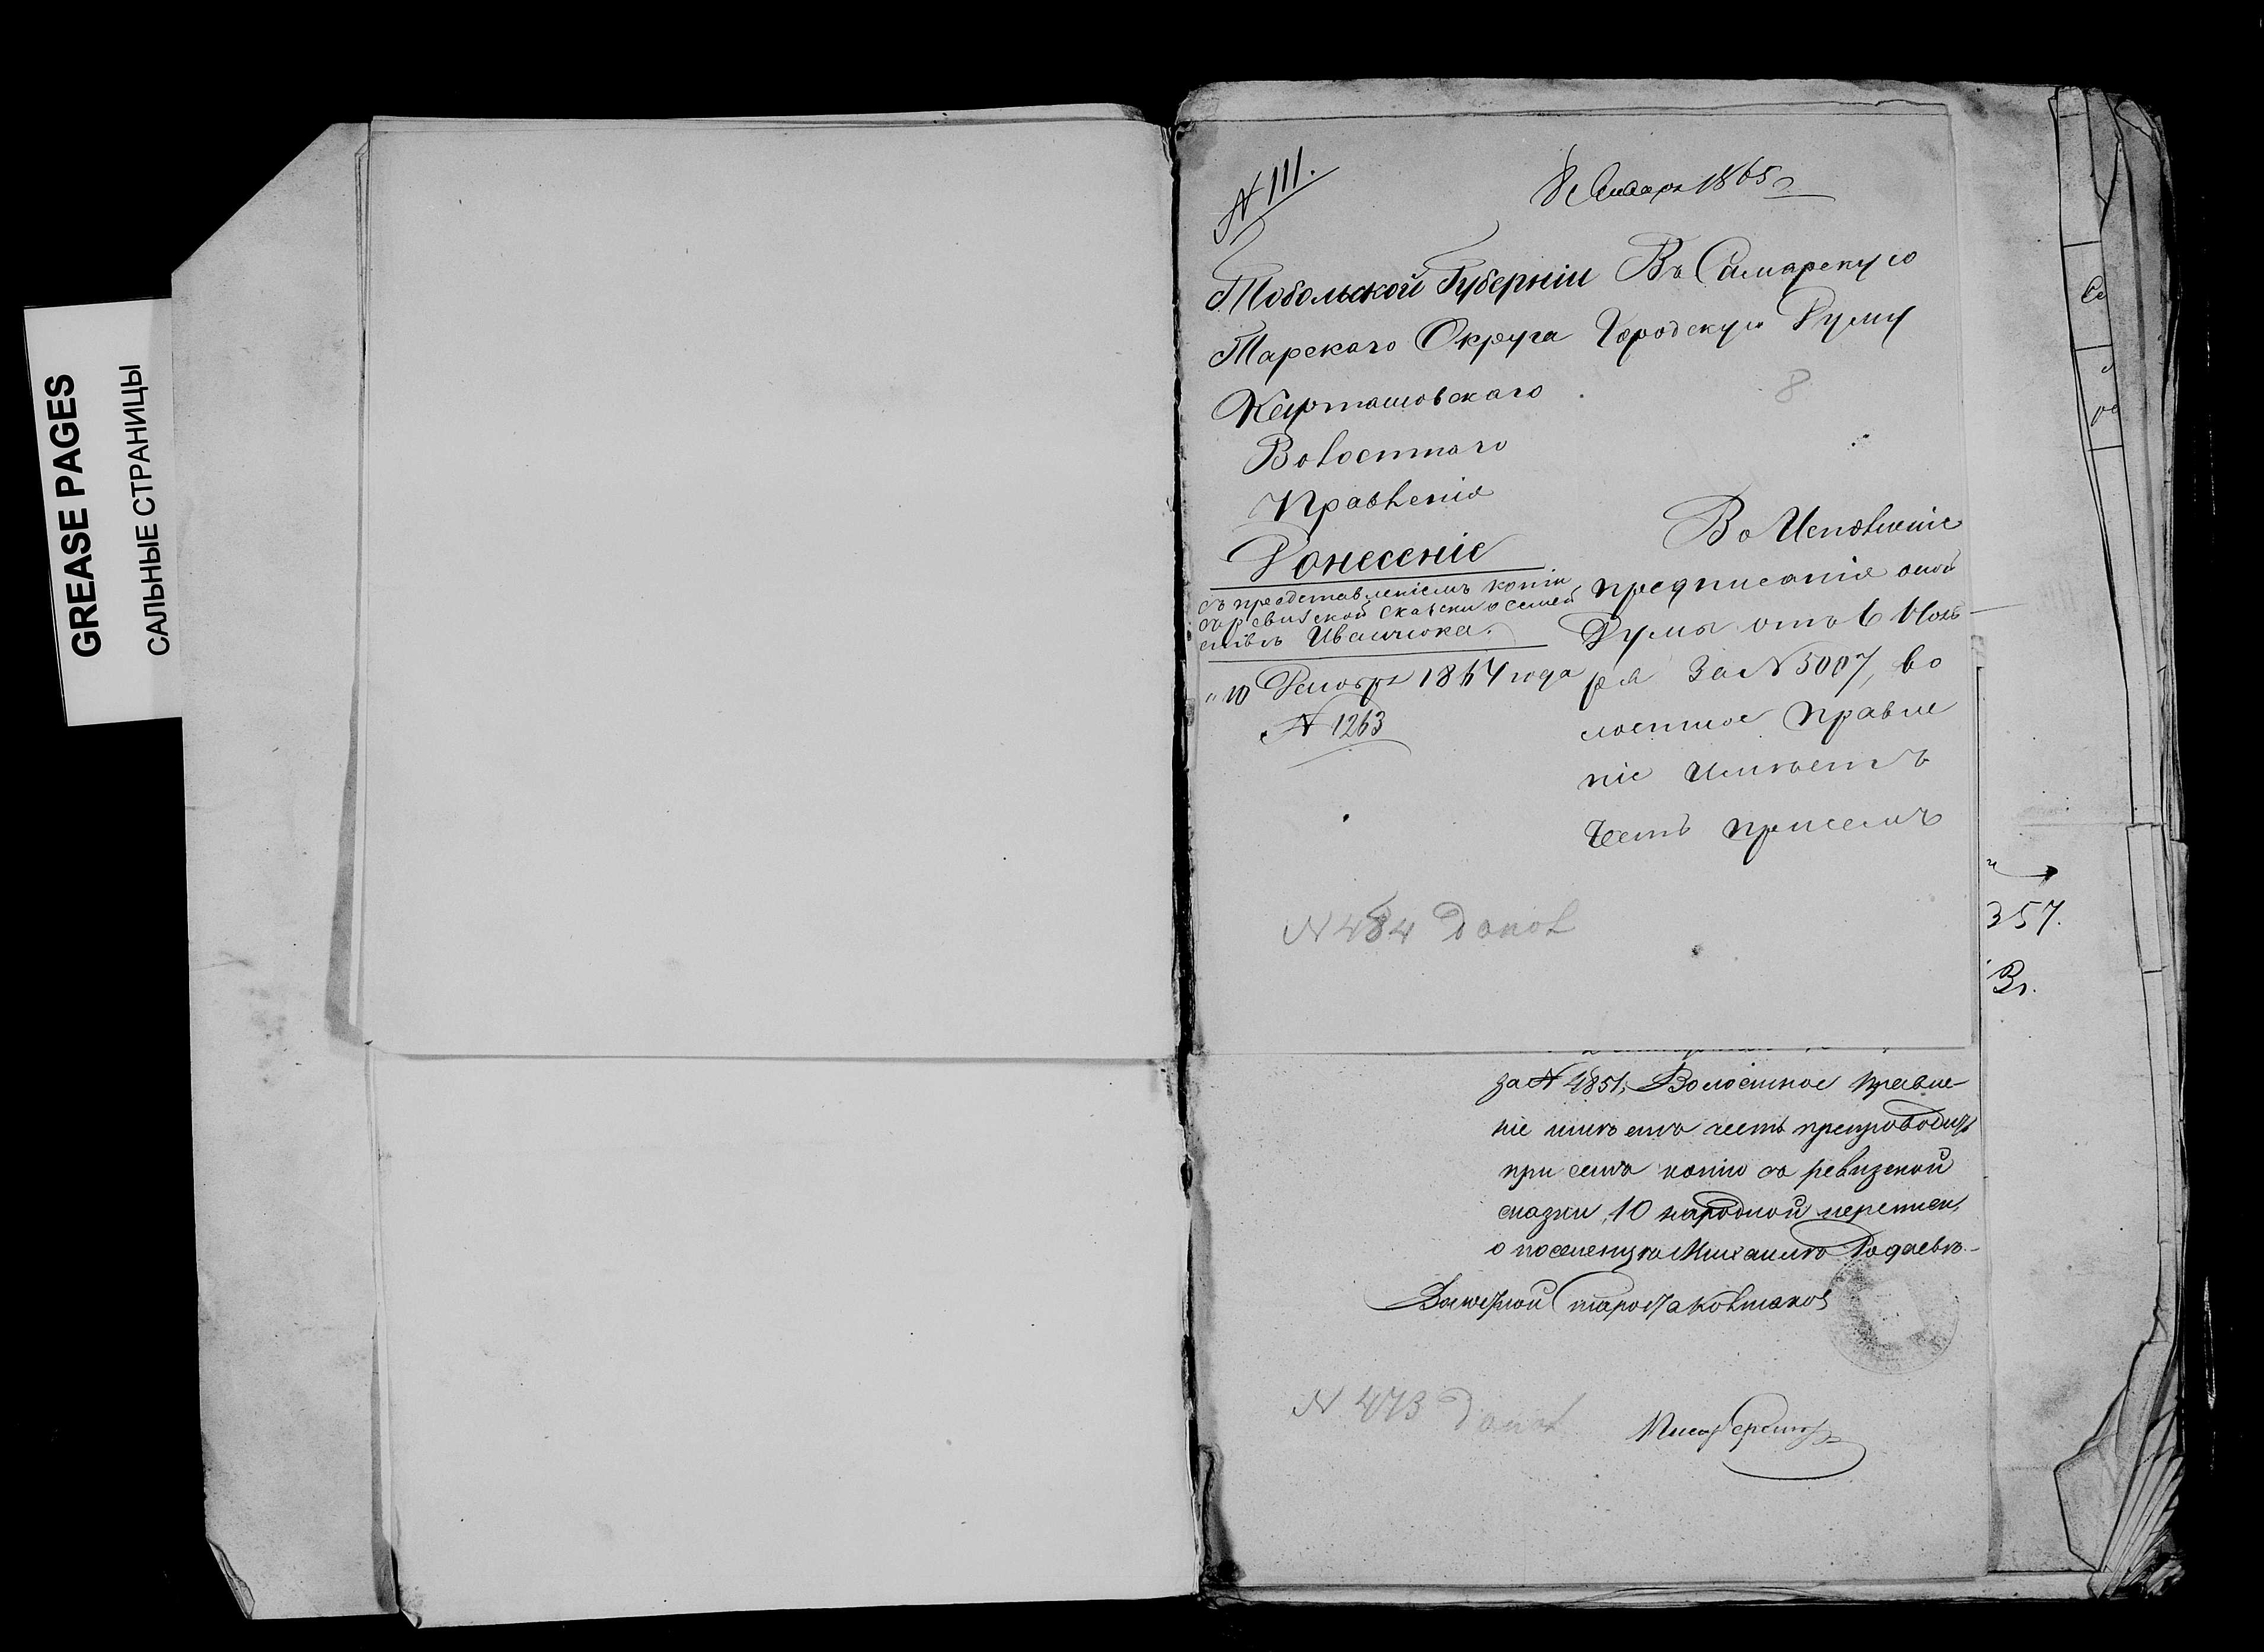 GREASE PAGES
САЛЬНЫЕ СТРАНИЦЫ
N 111.
8 Января 1865
Тобольской Губерніи
Тарскаго Округа
Карташовскаго
Волостнаго
Правленія
Донесеніе
съ представленіемъ копіи
съ ревизской скаски о семей
ствѣ
"10 Декабря 1864 года
N 1263
Въ Самарскую
Городскую Думу
8
Во Исполненіе
предписанія оной
Думы отъ 6 Нояб
ря За N 5007, во
лостное Правле
ніе имѣетъ
Честь при семъ
N 484 Допол
357.
за N 4851, Волостное Правле-
ніе имѣетъ честь препроводить
при семъ копію съ ревизской
сказки, 10 народной переписи,
о поселенцѣ Михаилѣ
N 473 Допол
Писарь